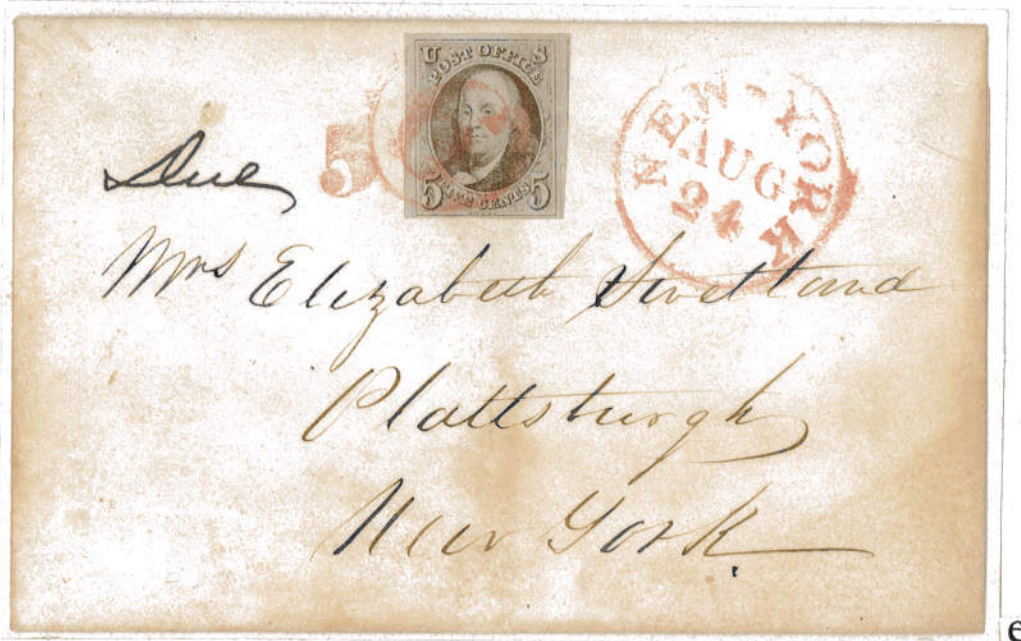 U S
POST OFFICE
5 FIVE CENTS 5
5
NEW-YORK
AUG
24
Due
Mrs Elizabeth Swetland
Plattsburgh
New York
6